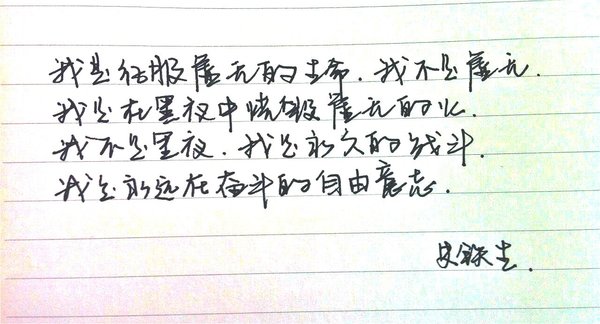 我是征服虚无的生命．我不是虚无．
我是在黑夜中烧毁虚无的火．
我不是黑夜．我是永久的战斗．
我是永远在奋斗的自由意志．
史铁生．